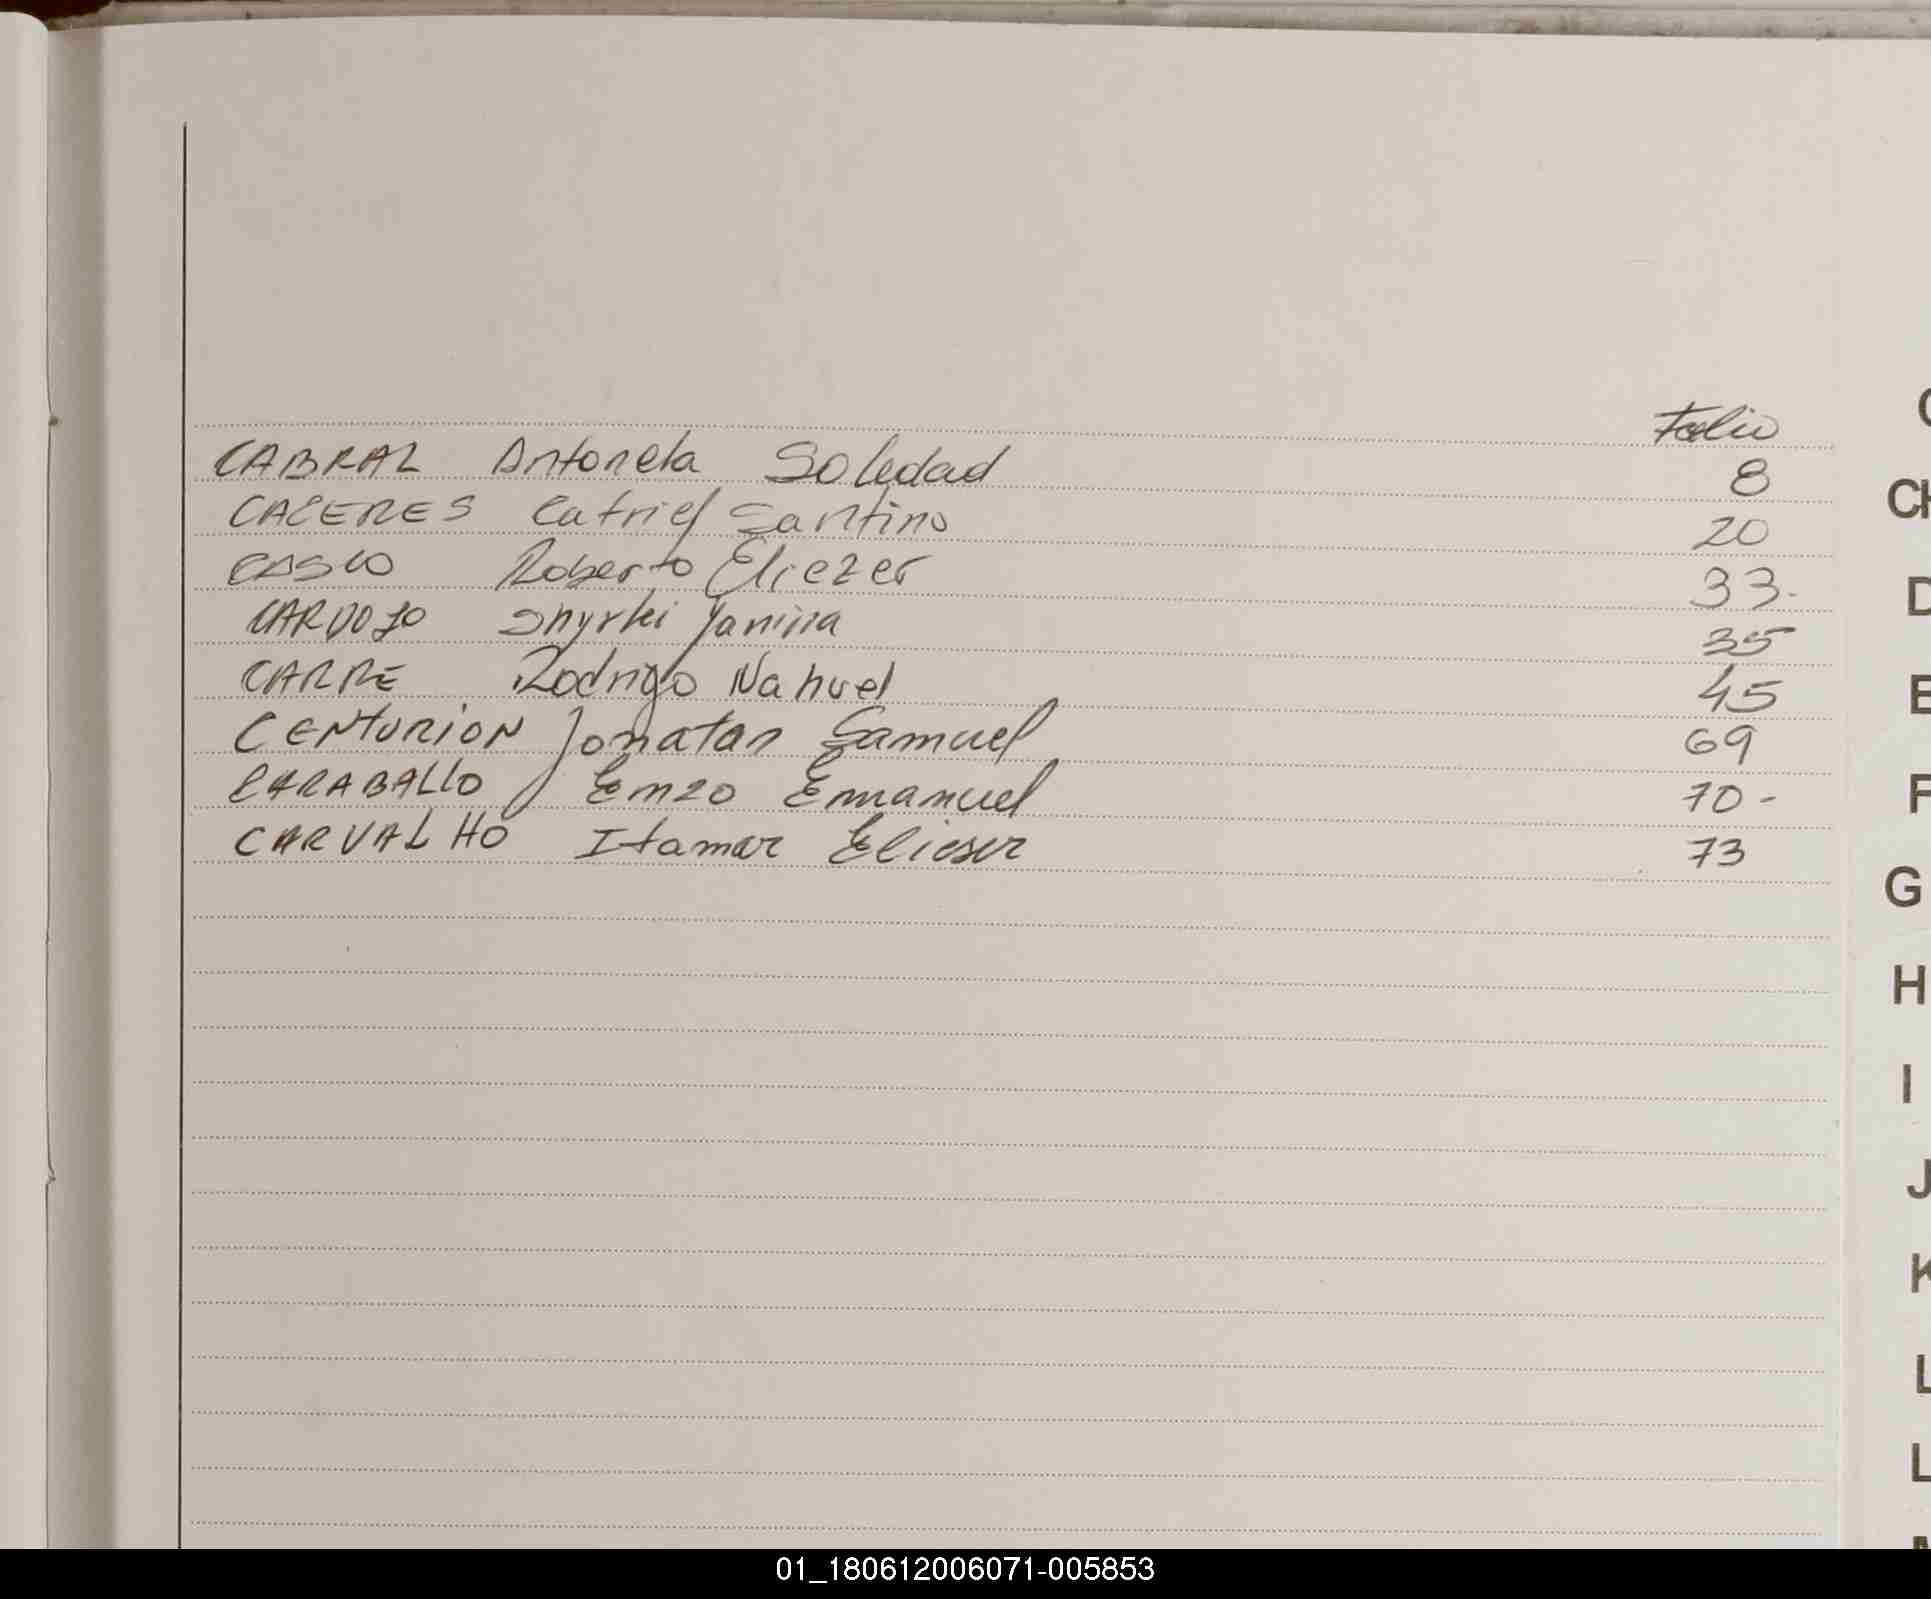 Folio
CABRAL Antonela Soledad 8
CACERES Catriel Santino 20
CASCO Roberto Eliezer 33-
CARDOZO Shyrki Yanina 35
CARRE Rodrigo Nahuel 45
CENTURION Jonatan Samuel 69
CARABALLO Enzo Emmanuel 70-
CARVALHO Itamar Elieser 73
CH
D
E
F
G
H
I
J
K
L
L
01_180612006071-005853